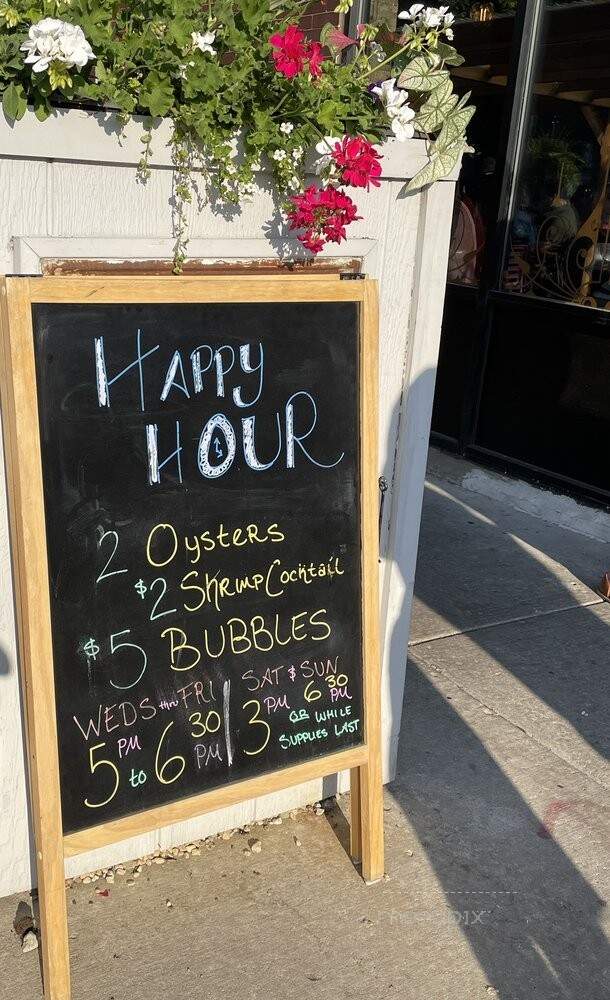 HAPPY
HOUR
2 Oysters
$2 Shrimp Cocktail
$5 BUBBLES
WEDS thru FRI | SAT & SUN
5 PM to 6 30 PM | 3 PM 6 30 PM
OR WHILE
SUPPLIES LAST